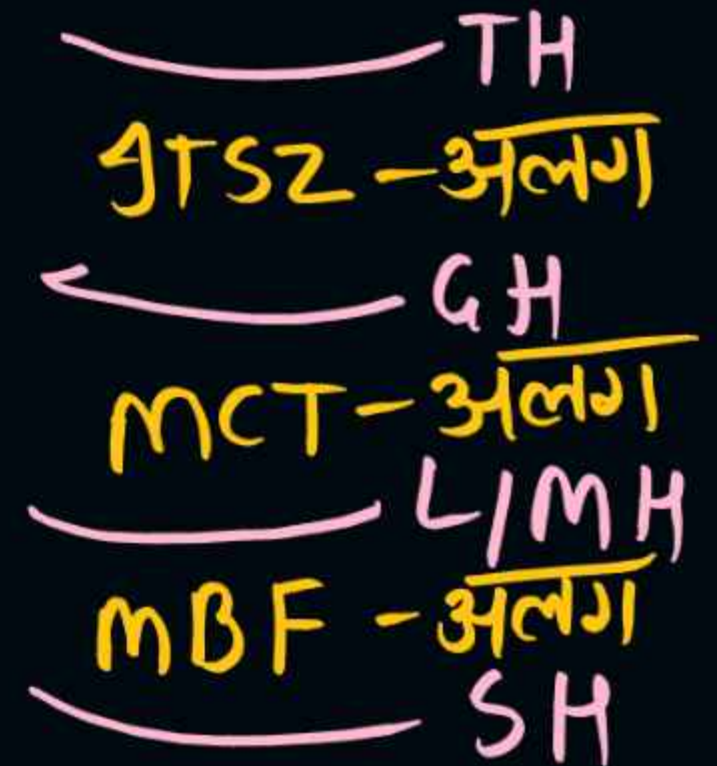 TH
ITSZ - अलग
GH
MCT - अलग
L/MH
MBF - अलग
SH